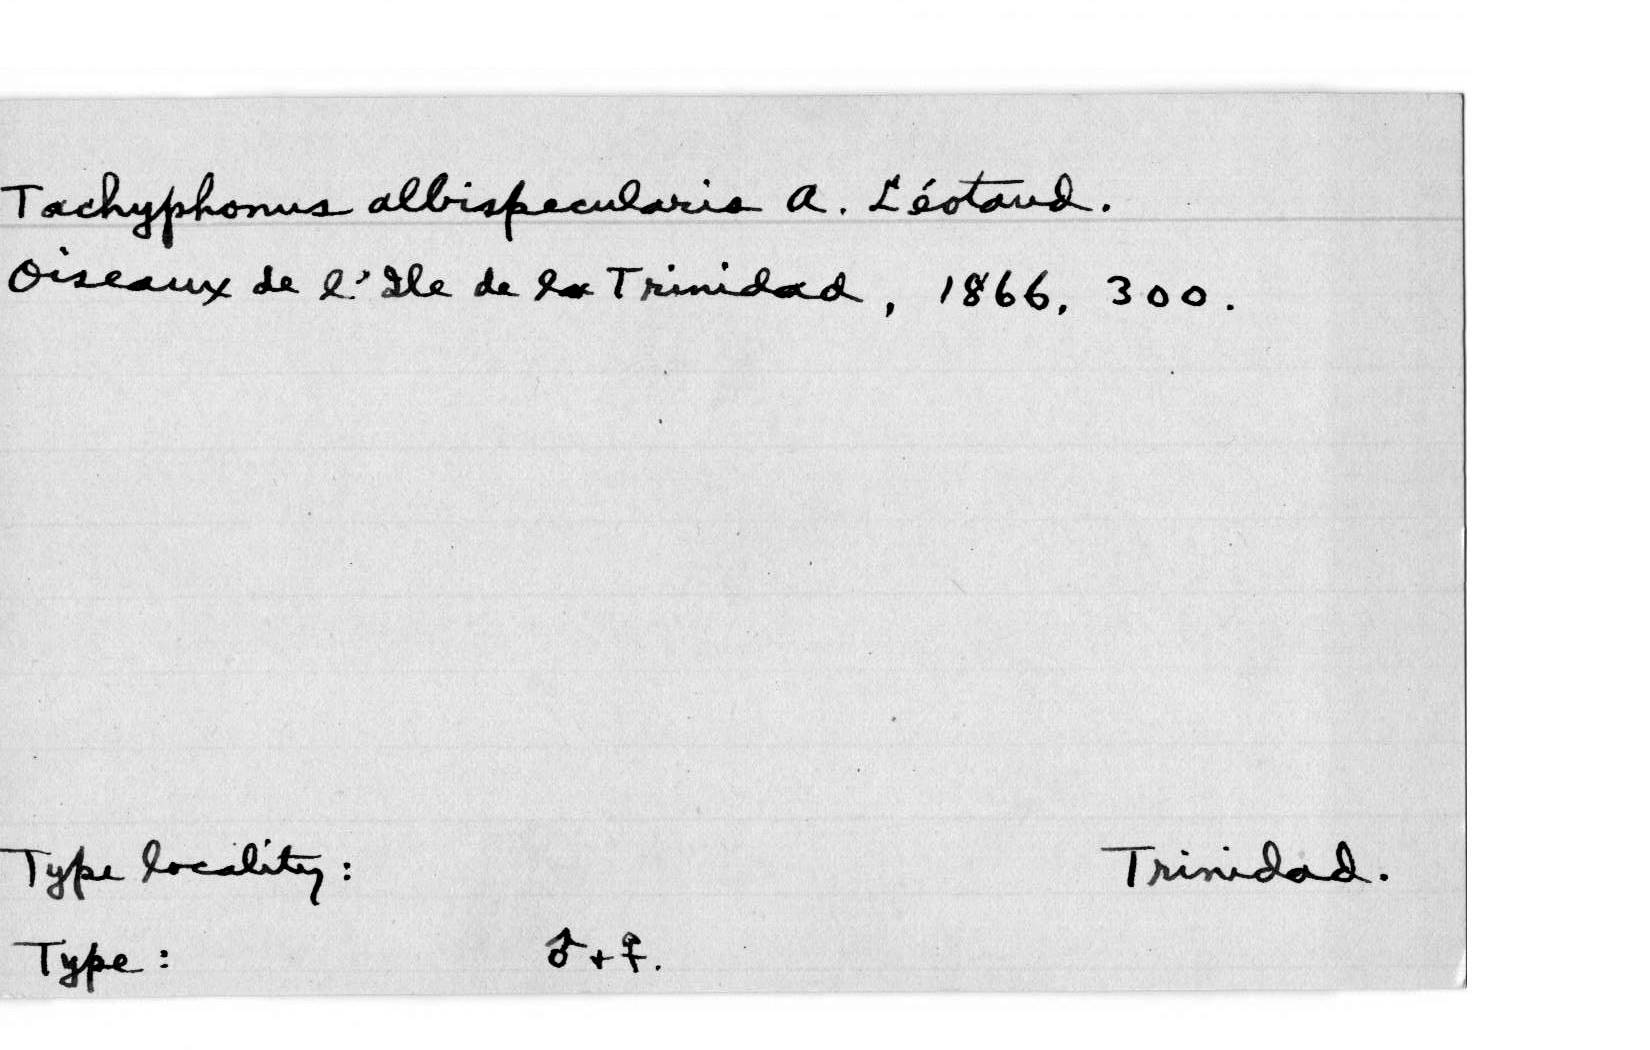 Tachyphonus albispecularis A. Léotaud.
Oiseaux de l'Ile de la Trinidad, 1866, 300.
Type locality: Trinidad.
Type: ♂ + ♀.